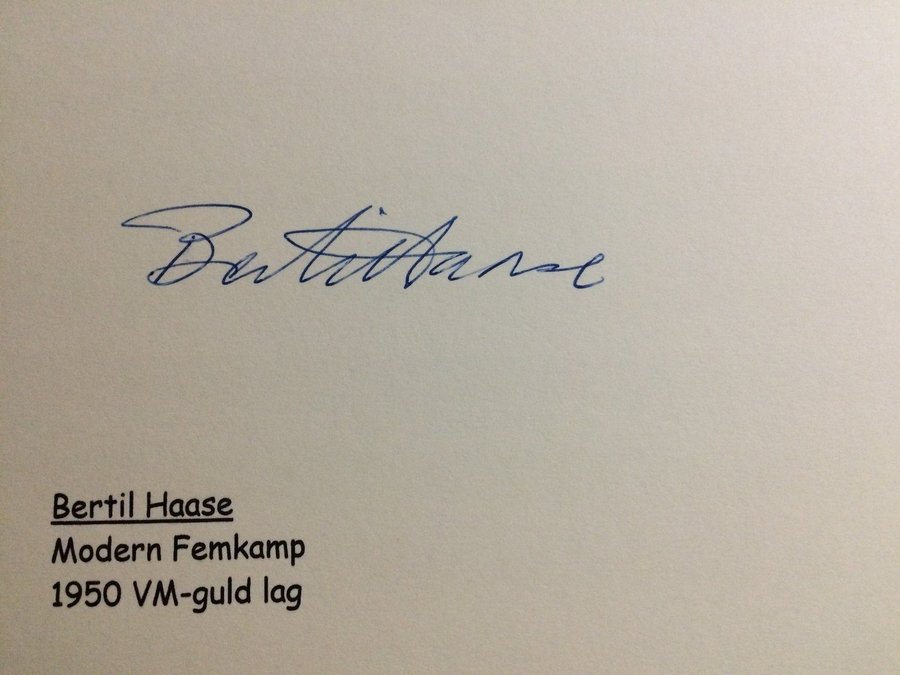 Bertil Haase
Bertil Haase
Modern Femkamp
1950 VM-guld lag